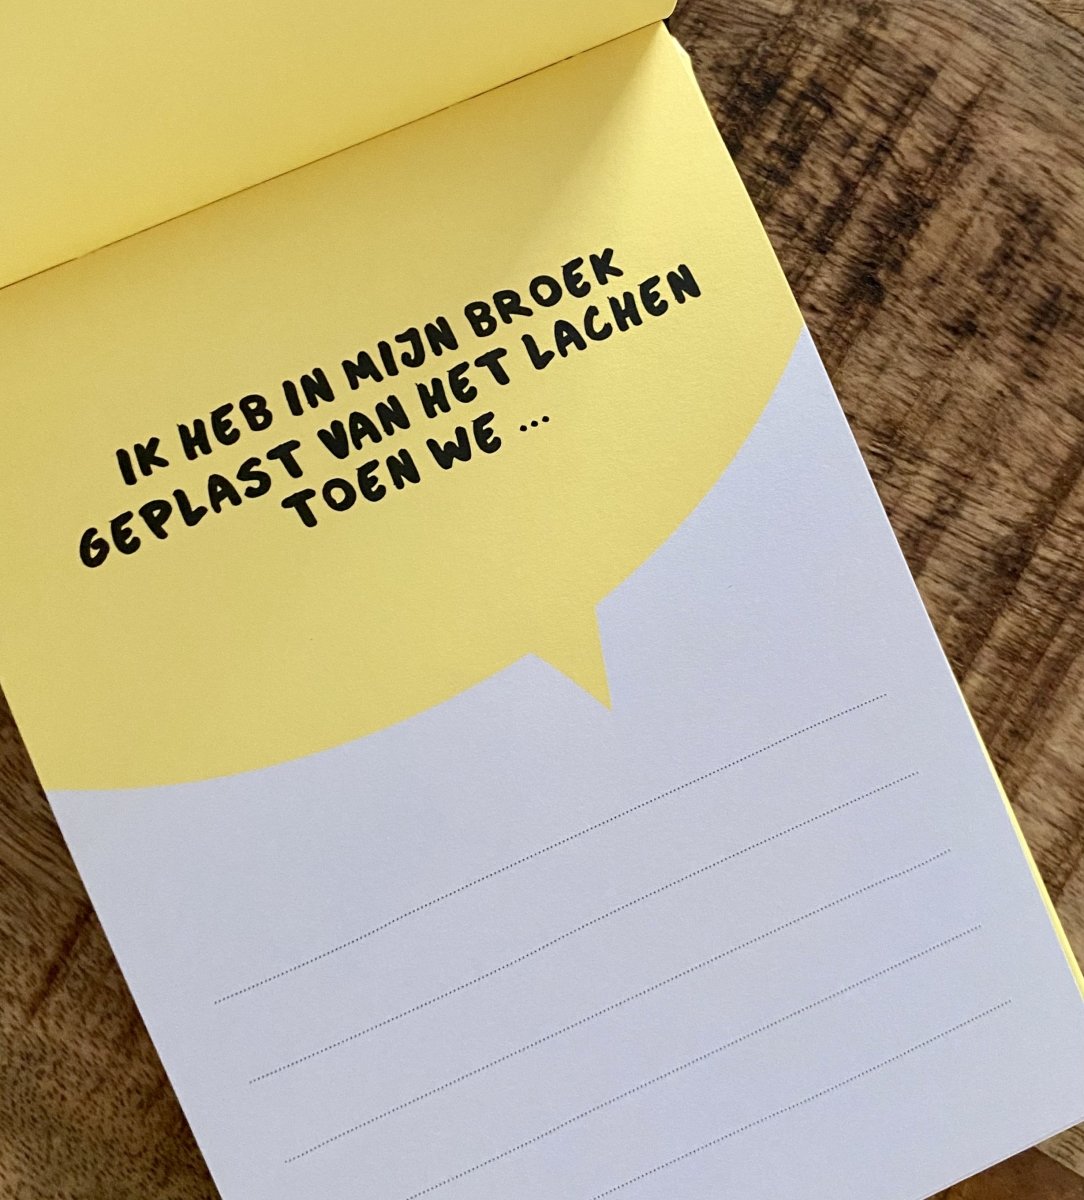 IK HEB IN MIJN BROEK
GEPLAST VAN HET LACHEN
TOEN WE ...